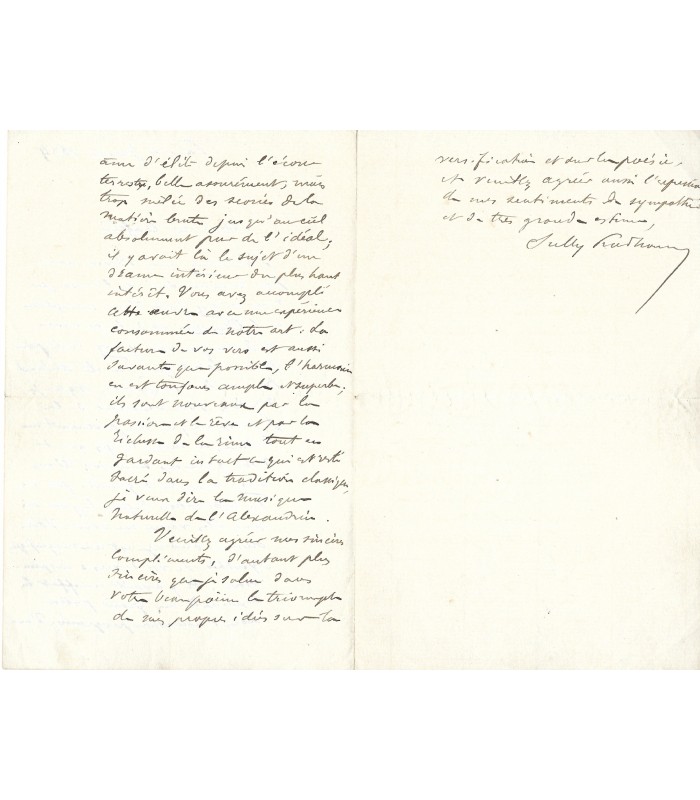 âme d'élite depuis l'écorce
terrestre, belle assurément, mais
trop mêlée des scories de la
matière brute jusqu'au ciel
absolument pur de l'idéal;
il y avait là le sujet d'un
drame intérieur du plus haut
intérêt. Vous avez accompli
cette œuvre avec une expérience
consommée de notre art. La
facture de vos vers est aussi
savante que possible, l'harmonie
en est toujours ample et superbe;
ils sont nouveaux par la
passion et le rêve et par la
richesse de la rime tout en
gardant intact ce qui est resté
sacré dans la tradition classique,
je veux dire la musique
naturelle de l'Alexandrin.
Veuillez agréer mes sincères
compliments, d'autant plus
sincères que je salue dans
votre beau poème le triomphe
de mes propres idées sur la
versification et sur la poésie,
et veuillez agréer aussi l'expression
de mes sentiments de sympathie
et de très grande estime,
Sully Prudhomme